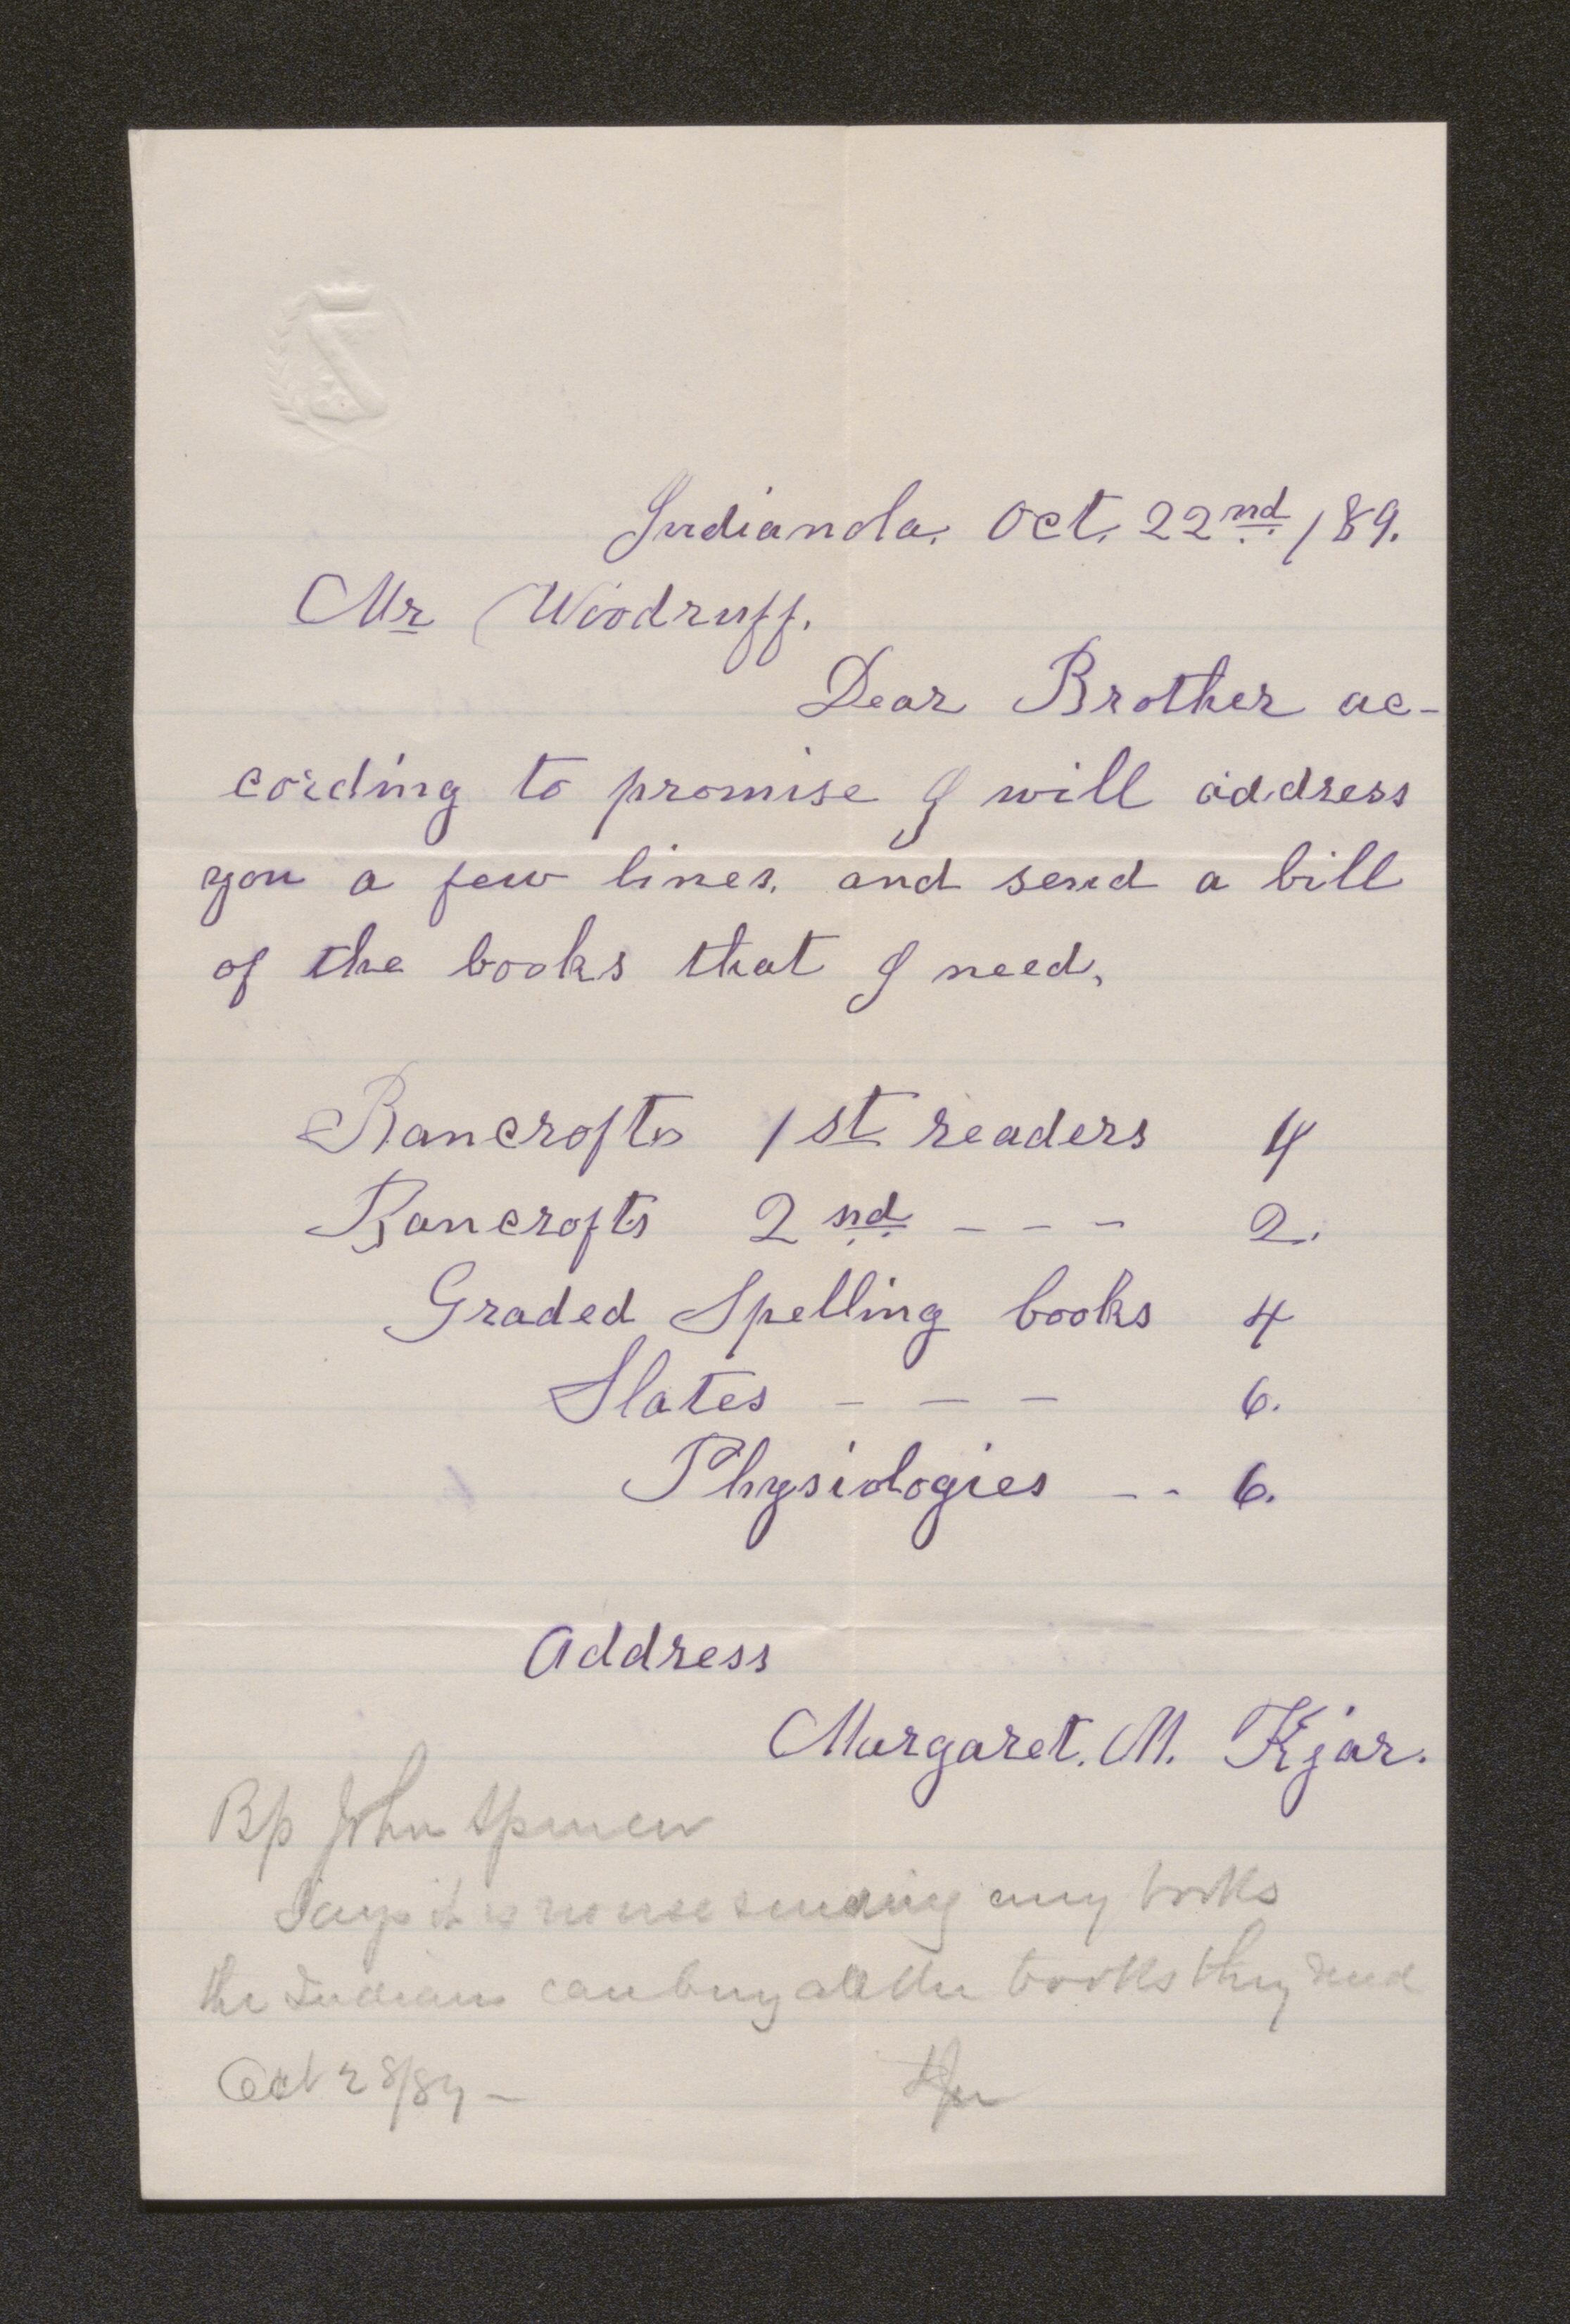 Z
Indianola. Oct. 22nd /89.
Mr Woodruff.
Dear Brother ac-
cording to promise I will address
you a few lines, and send a bill
of the books that I need,
Bancrofts 1st readers 4
Bancrofts 2nd - - - 2.
Graded Spelling books 4
Slates - - - 6.
Physiologies - - 6.
Address
Margaret. M. Kjar.
Bp John Spencer
Says it is no use sending any books
the Indians can buy all the books they need
Oct 28/89 -